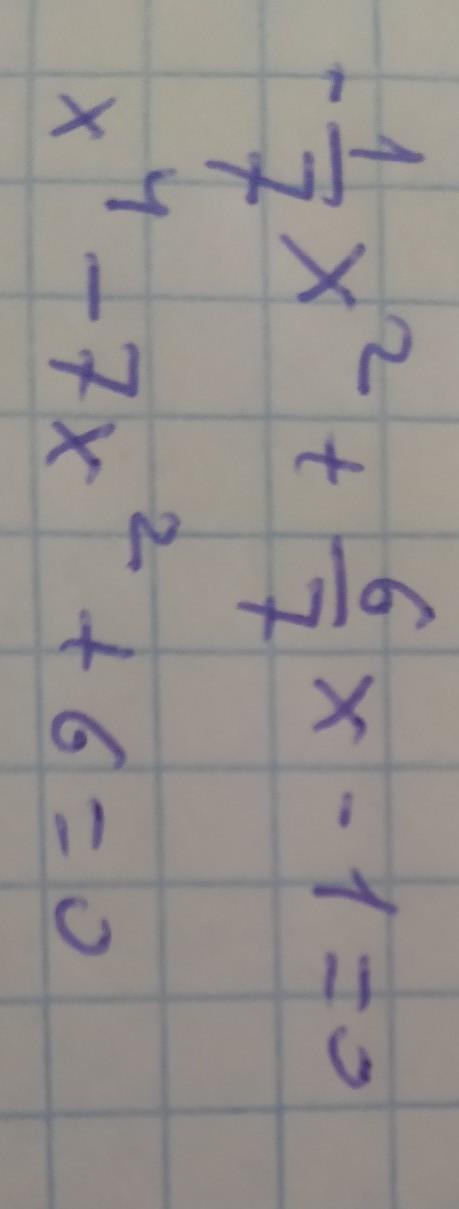 -1/7 x² + 6/7 x - 1 = 0
x⁴ - 7x² + 6 = 0